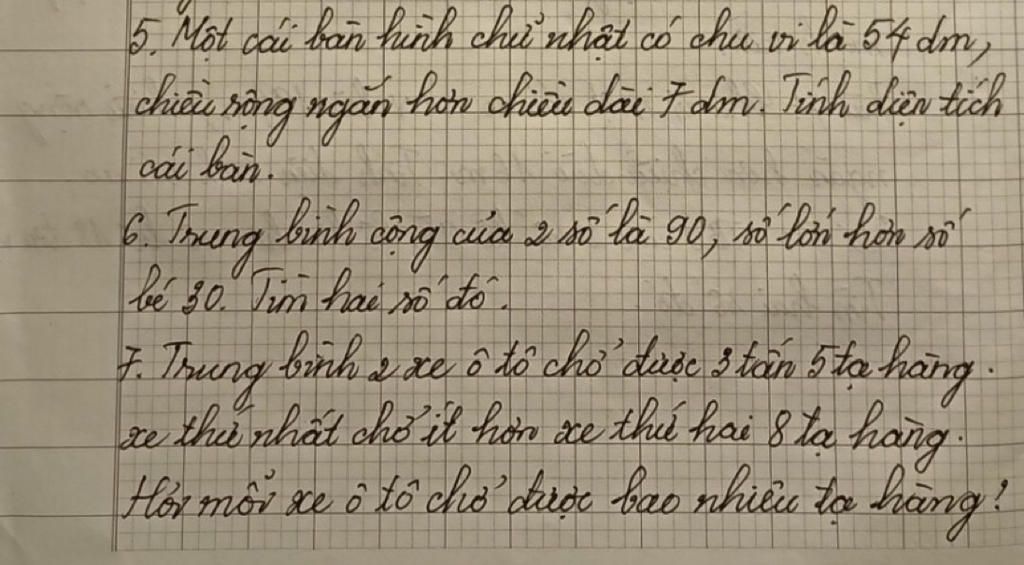 5. Một cái bàn hình chữ nhật có chu vi là 54 dm,
chiều rộng ngắn hơn chiều dài 7 dm. Tính diện tích
cái bàn.
6. Trung bình cộng của 2 số là 90, số lớn hơn số
bé 30. Tìm hai số đó.
7. Trung bình 2 xe ô tô chở được 3 tấn 5 tạ hàng.
xe thứ nhất chở ít hơn xe thứ hai 8 tạ hàng.
Hỏi mỗi xe ô tô chở được bao nhiêu tạ hàng?